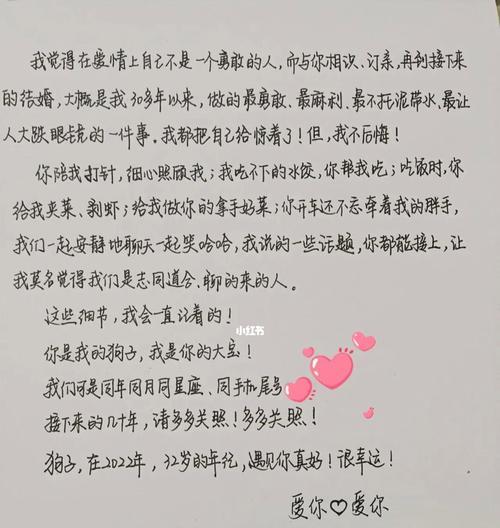 我觉得在爱情上自己不是一个勇敢的人,而与你相识、订亲,再到接下来
的结婚,大概是我30多年以来,做的最勇敢、最麻利、最不托泥带水、最让
人大跌眼镜的一件事。我都把自己给惊着了!但,我不后悔!
你陪我打针,细心照顾我;我吃不下的水饺,你帮我吃;吃饭时,你
给我夹菜、剥虾;给我做你的拿手好菜;你开车还不忘牵着我的胖手,
我们一起安静地聊天一起笑哈哈,我说的一些话题,你都能接上,让
我莫名觉得我们是志同道合、聊的来的人。
这些细节,我会一直记着的!
小红书
你是我的狗子,我是你的大宝!
我们可是同年同月同星座、同手机尾号
接下来的几十年,请多多关照!多多关照!
狗子,在2022年,32岁的年纪,遇见你真好!很幸运!
爱你♡爱你